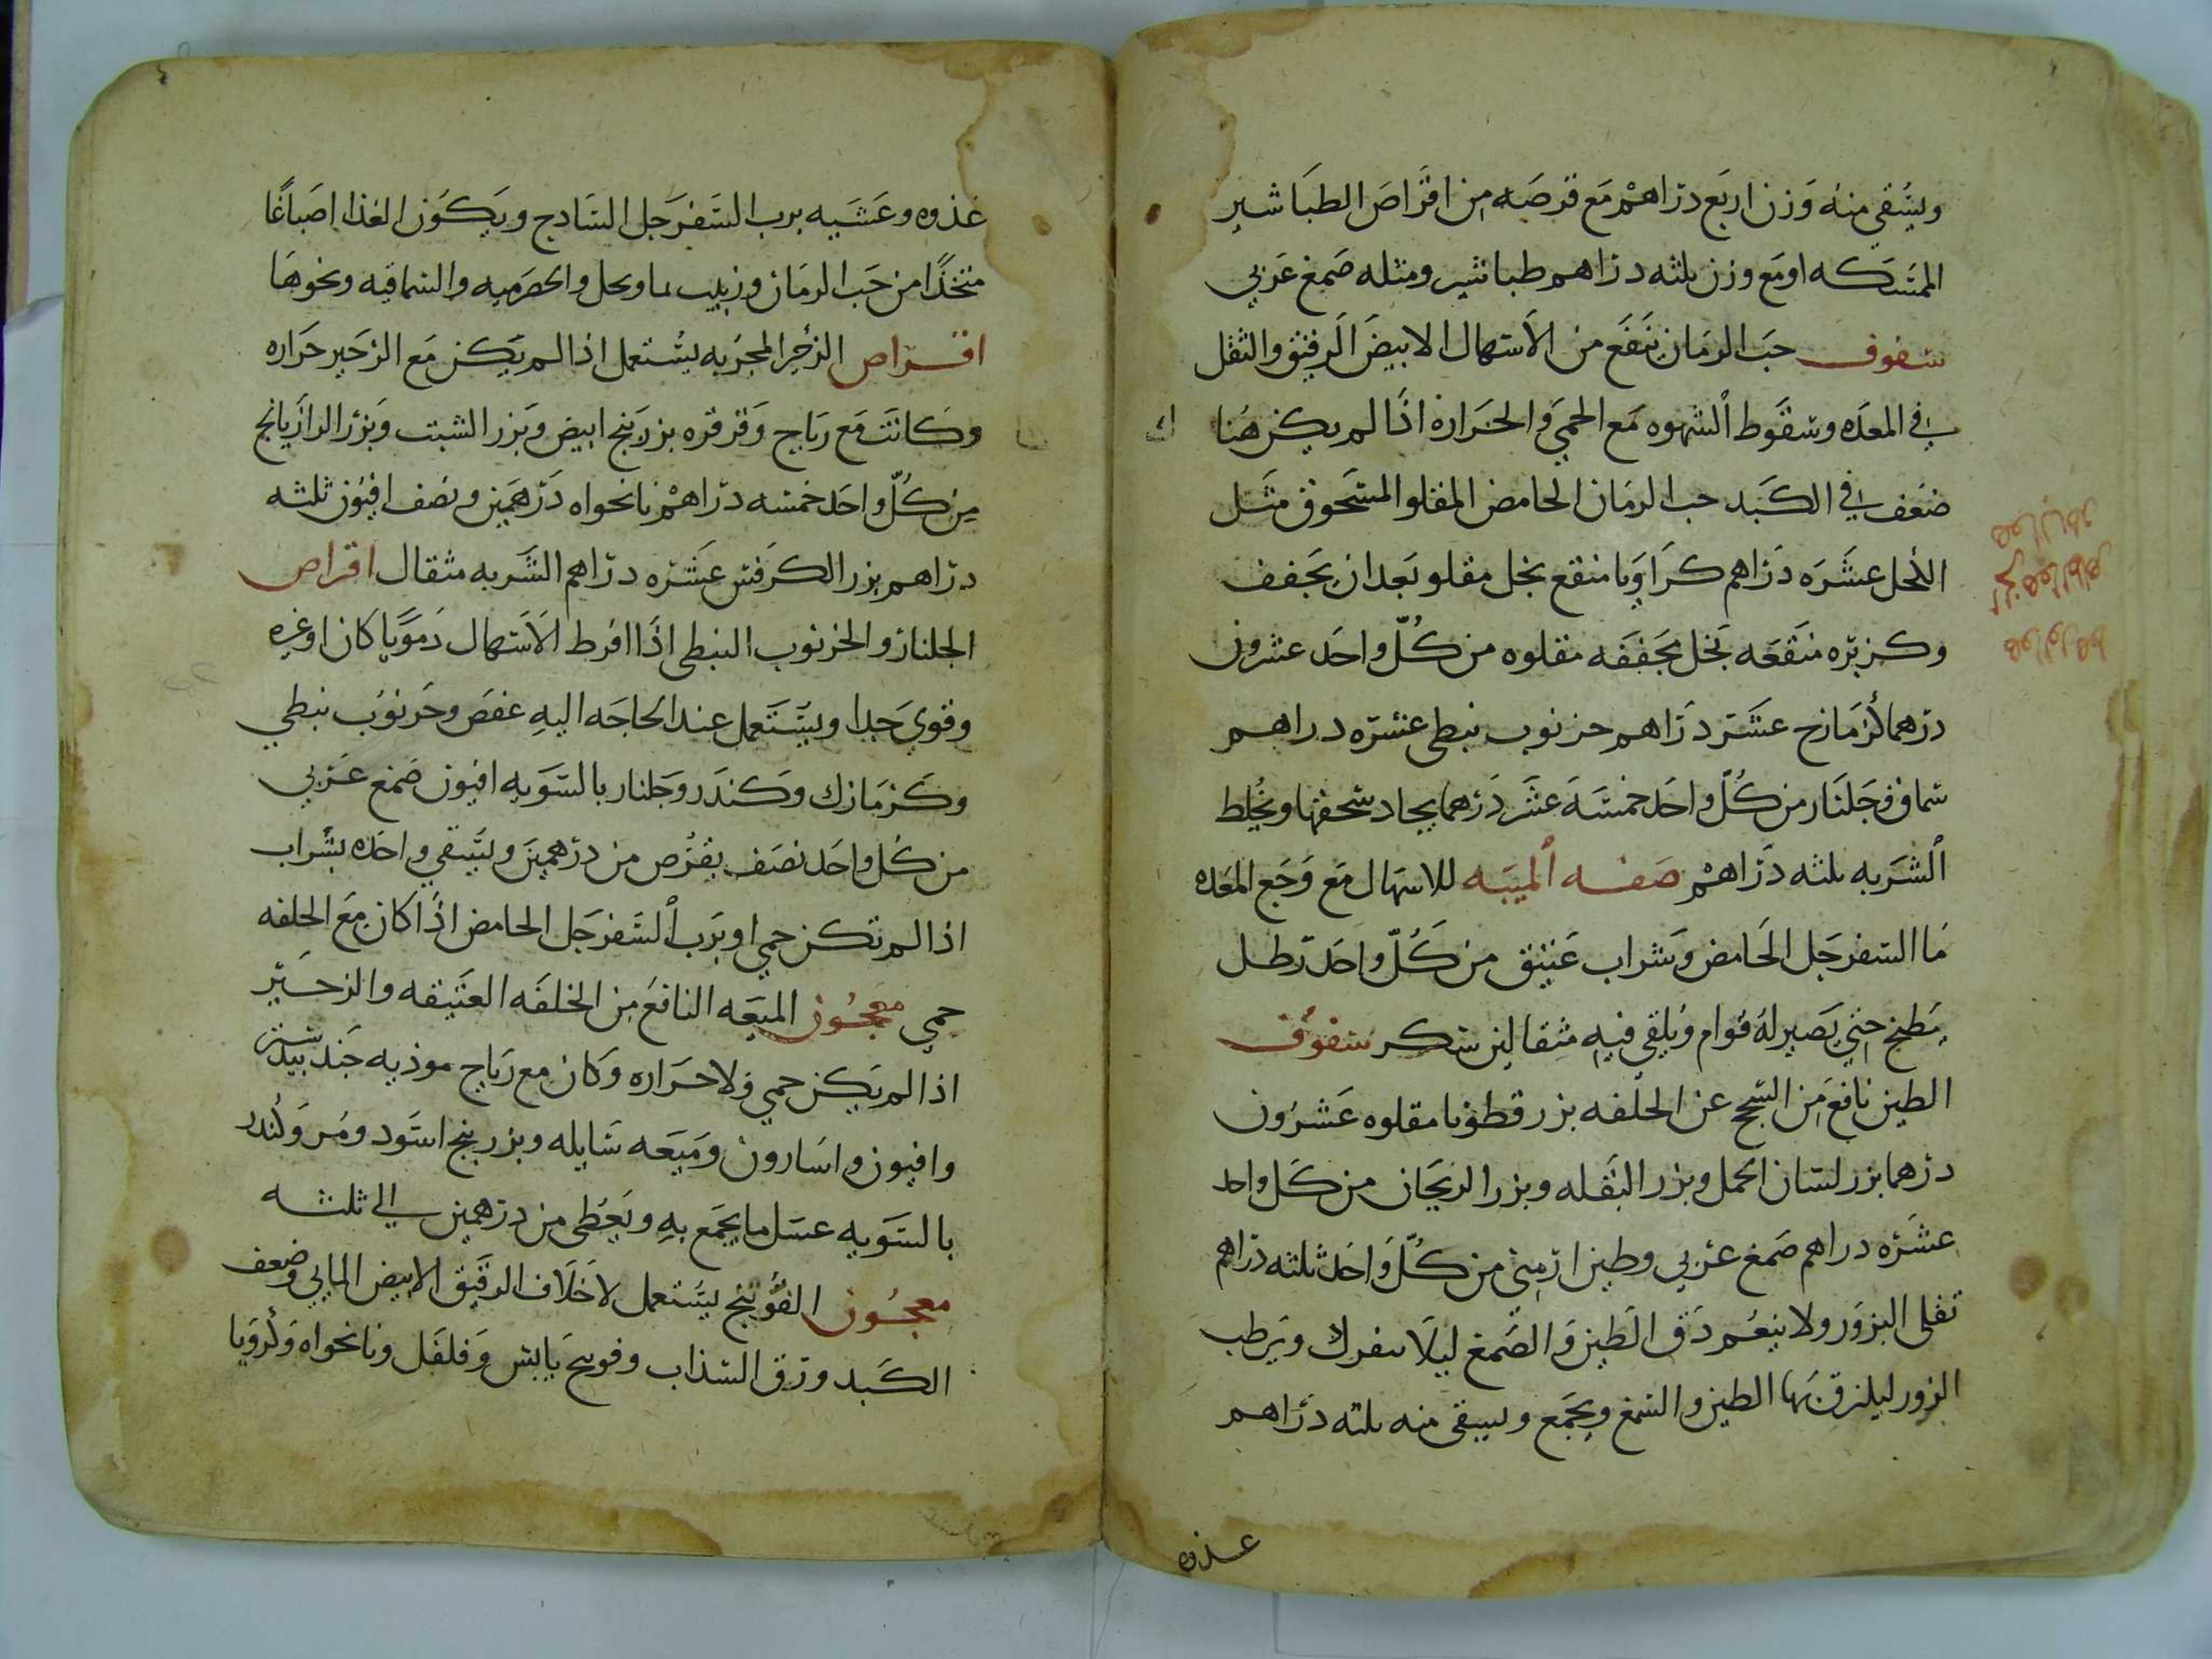 ويسقى منه وزن اربع دراهم مع قرصه من اقراص الطباشير
الممسكه او مع وزن ثلثه دراهم طباشير ومثله صمغ عربي
سفوف حب الرمان ينفع من الاسهال الابيض الرقيق والثقل
في المعده وسقوط الشهوه مع الحمي والحراره اذا لم يكن هنا
ك
ضعف في الكبد حب الرمان الحامض المقلو المسحوق مثل
الكحل عشره دراهم كراويا منقع بخل مقلو بعد ان يجفف
وكزبره منقعه بخل مجففه مقلوه من كل واحد عشرون
درهما كزمازج عشر دراهم خرنوب نبطي عشره دراهم
سماق وجلنار من كل واحد خمسه عشر درهما يجاد سحقها ويخلط
الشربه ثلثه دراهم صفه الميبه للاسهال مع وجع المعده
ما السفرجل الحامض وشراب عتيق من كل واحد رطل
يطبخ حتي يصير له قوام ويلقى فيه مثقالين سكر سفوف
الطين نافع من السحج عن الخلفه بزر قطونا مقلوه عشرون
درهما بزر لسان الحمل وبزر البقله وبزر الريحان من كل واحد
عشره دراهم صمغ عربي وطين ارمني من كل واحد ثلثه دراهم
تقلى البزور ولا ينعم دق الطين والصمغ ليلا ينفرك ويرطب
البزور ليلزق بها الطين والصمغ ويجمع ويسقى منه ثلثه دراهم
غدوه
غدوه وعشيه برب السفرجل السادج ويكون الغذا اصباغا
متخذا من حب الرمان وزبيب بماوخل والحصرميه والسماقيه ونحوها
اقراص الزحير المجربه يستعمل اذا لم يكن مع الزحير حراره
وكانت مع رياح وقرقره بزر بنج ابيض وبزر الشبت وبزر الرازيانج
من كل واحد خمسه دراهم نانخواه درهمين ونصف افيون ثلثه
دراهم بزر الكرفس عشره دراهم الشربه مثقال اقراص
الجلنار والخرنوب النبطي اذا افرط الاسهال دمويا كان او غيره
وقوي جدا ويستعمل عند الحاجه اليه عفص وخرنوب نبطي
وكزمازك وكندر وجلنار بالسويه افيون صمغ عربي
من كل واحد نصف يقرص من درهمين ويسقي واحده بشراب
اذا لم تكن حمي او برب السفرجل الحامض اذا كان مع الخلفه
حمي معجون الميعه النافع من الخلفه العتيقه والزحير
اذا لم يكن حمي ولا حراره وكان مع رياح موذيه جندبيدستر
وافيون واسارون وميعه سايله وبزر بنج اسود ومر وكندر
بالسويه عسل ما يجمع به ويعطى من درهمين الي ثلثه
معجون الفوتنج يستعمل لاختلاف الرقيق الابيض المايي وضعف
الكبد ورق السذاب وفوتنج يابس وفلفل ونانخواه وكرويا